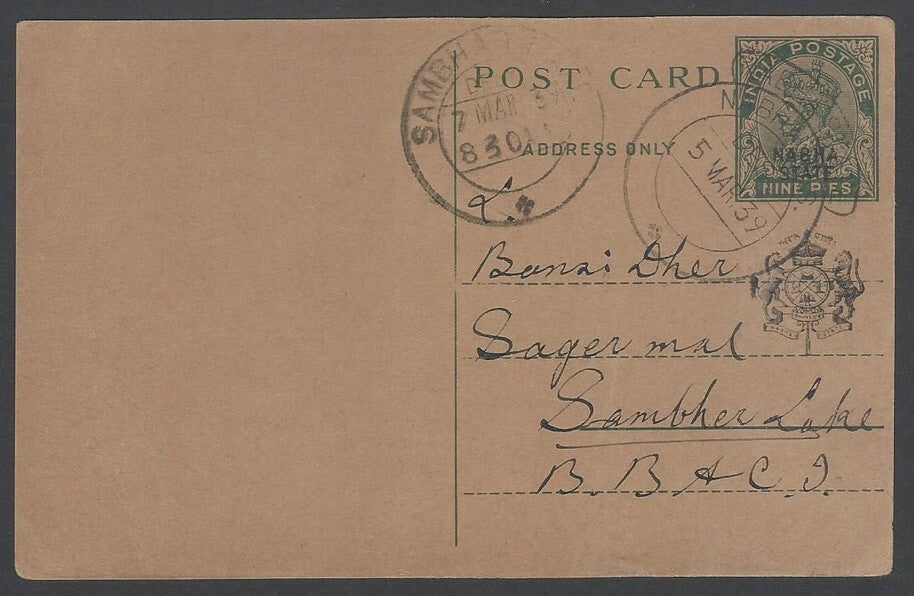 POST CARD
ADDRESS ONLY
INDIA POSTAGE
NABHA
STATE
NINE PIES
SAMBHAR
7 MAR 39
8 30
5 MAR 39
L.
Bansi Dher
Sager mal
Sambher Lake
B. B & C. I.